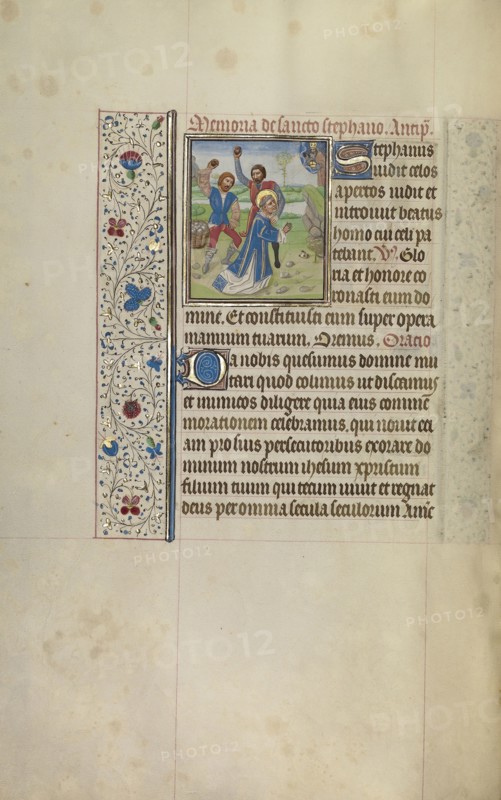 Memoria de sancto stephano. Antiph̄.
Stephanus
uidit celos
apertos uidit et
introiuit beatus
homo cui celi pa
tebant. V̄. Glo
ria et honore co
ronasti eum do
mine. Et constituisti eum super opera
manuum tuarum. Oremus. Oracio
Da nobis quesumus domine imi
tari quod colimus ut discamus
et inimicos diligere quia eius comme
morationem celebramus. qui nouit eci
am pro suis persecutoribus exorare do
minum nostrum ihesum xpristum
filium tuum qui tecum uiuit et regnat
deus per omnia secula seculorum Amē
PHOTO12
PHOTO12
PHOTO12
PHOTO12
PHOTO12
PHOTO12
PHOTO12